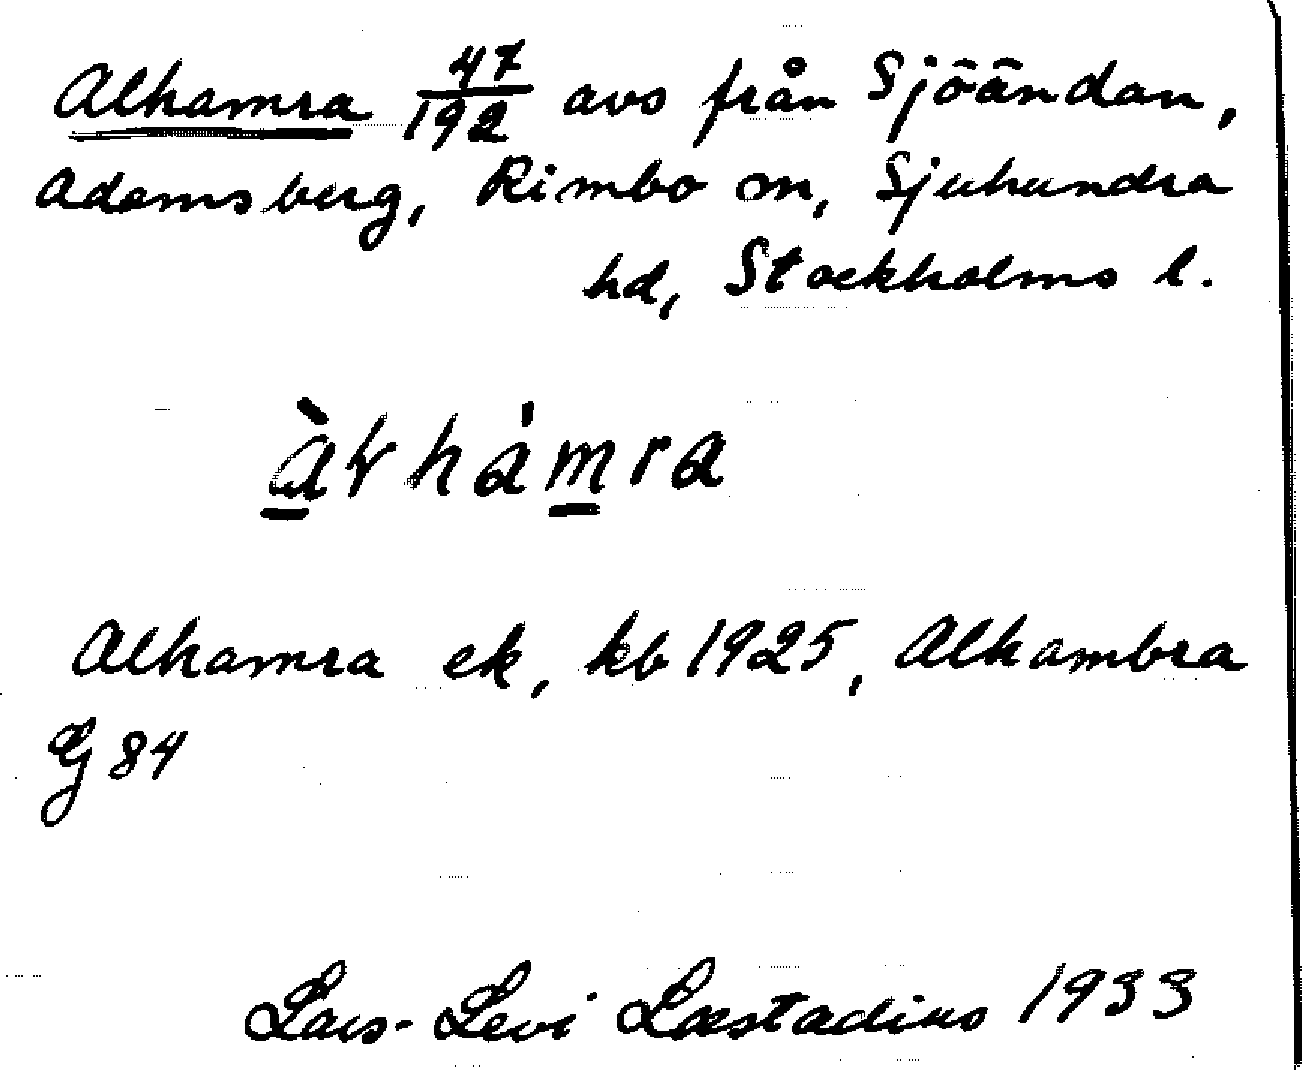 Alhamra 47/192 avs från Sjöändan,
Adamsberg, Rimbo sn, Sjuhundra
hd, Stockholms l.
àvhámra
Alhamra ek, kb 1925, Alhambra
G 84
Lars-Levi Læstadius 1933